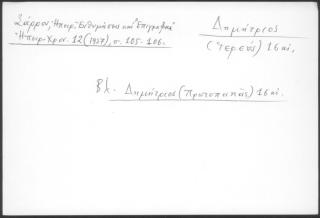 Σάρρου, Ἠπειρ. Ἐνθυμήσεις καὶ Ἐπιγραφαὶ
Ἠπειρ. Χρον. 12 (1937), σ. 105-106.
Δημήτριος
(ἱερεύς) 16 αἰ.
Βλ. Δημήτριος (Πρωτοπαπᾶς) 16 αἰ.